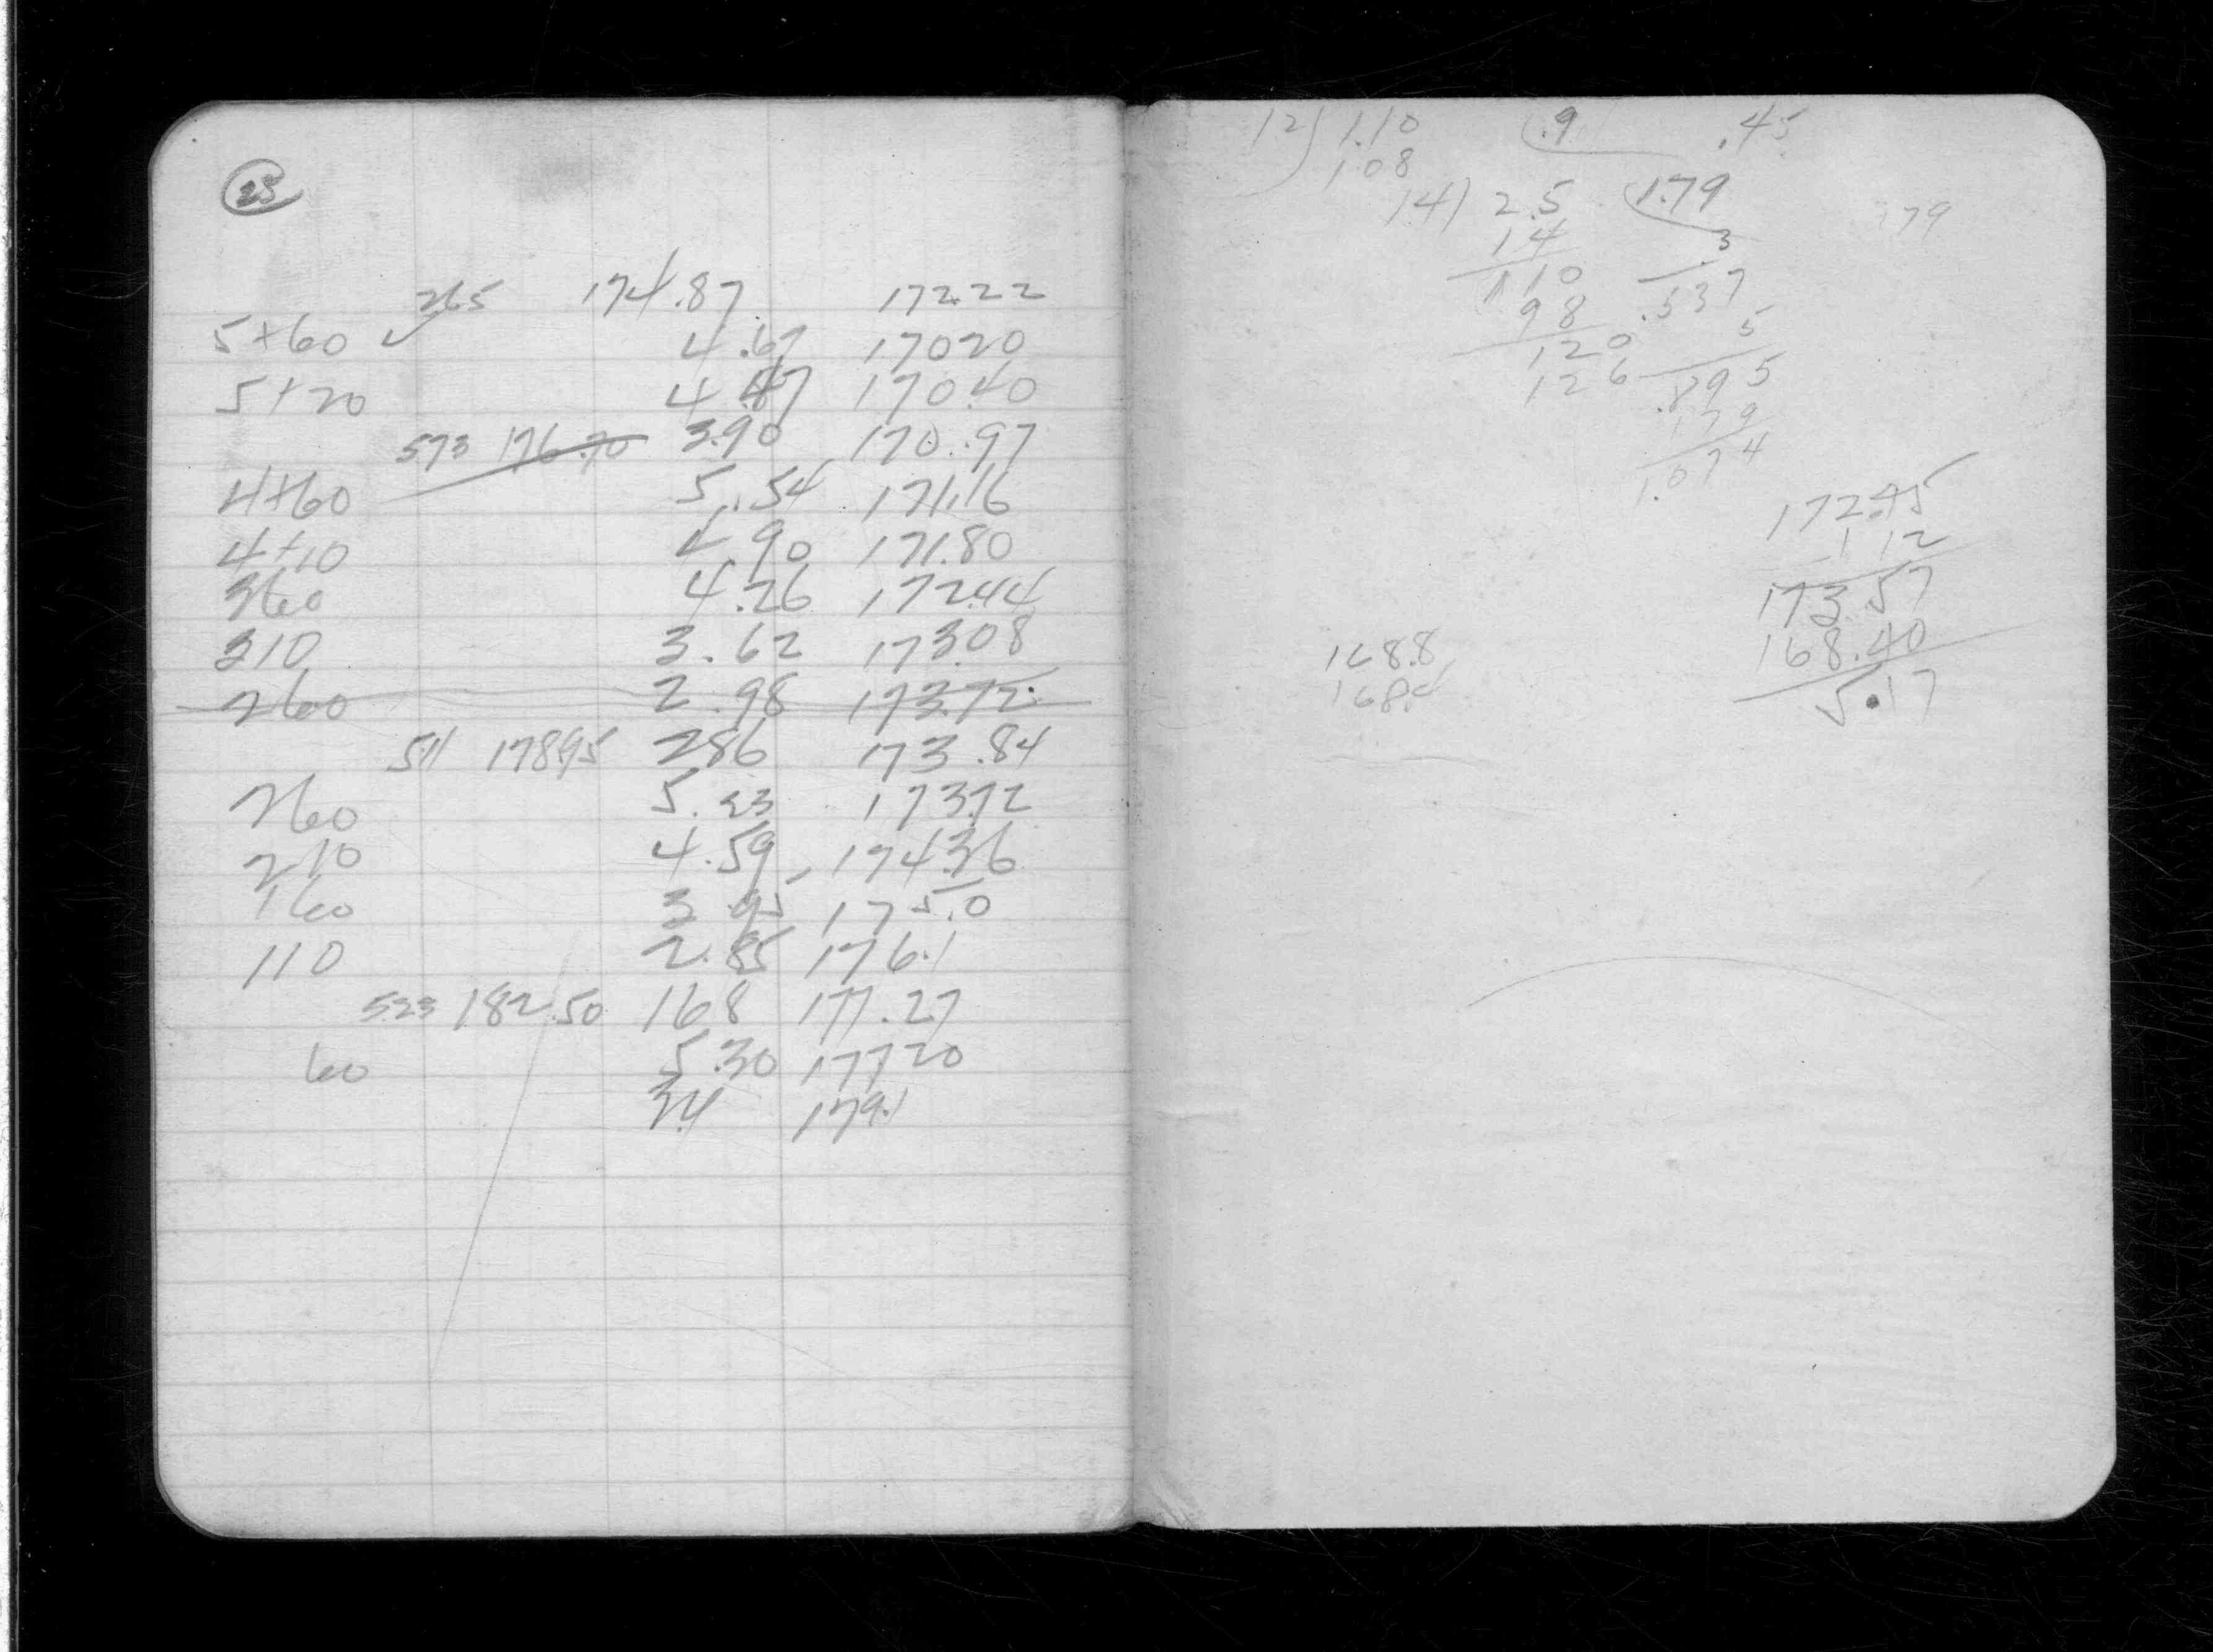 25
265 174.87 172.22
5+60 4.67 170.20
5+20 4.47 170.40
573 176.70 3.90 170.97
4+60 5.54 171.16
4+10 4.90 171.80
360 4.26 172.44
310 3.62 173.08
260 2.98 173.72
511 178.95 286 173.84
260 5.23 173.72
210 4.59 174.36
160 3.95 175.0
110 2.85 176.1
523 182.50 168 177.27
60 5.30 177.20
3.4 179.1
12) 1.10 (.9 .45
1.08
14) 2.5 (1.79
14 .3
110 .537
98 5
120 .895
126 179
1.074
172.45
1 12
173.57
168.8 168.40
168.4 5.17